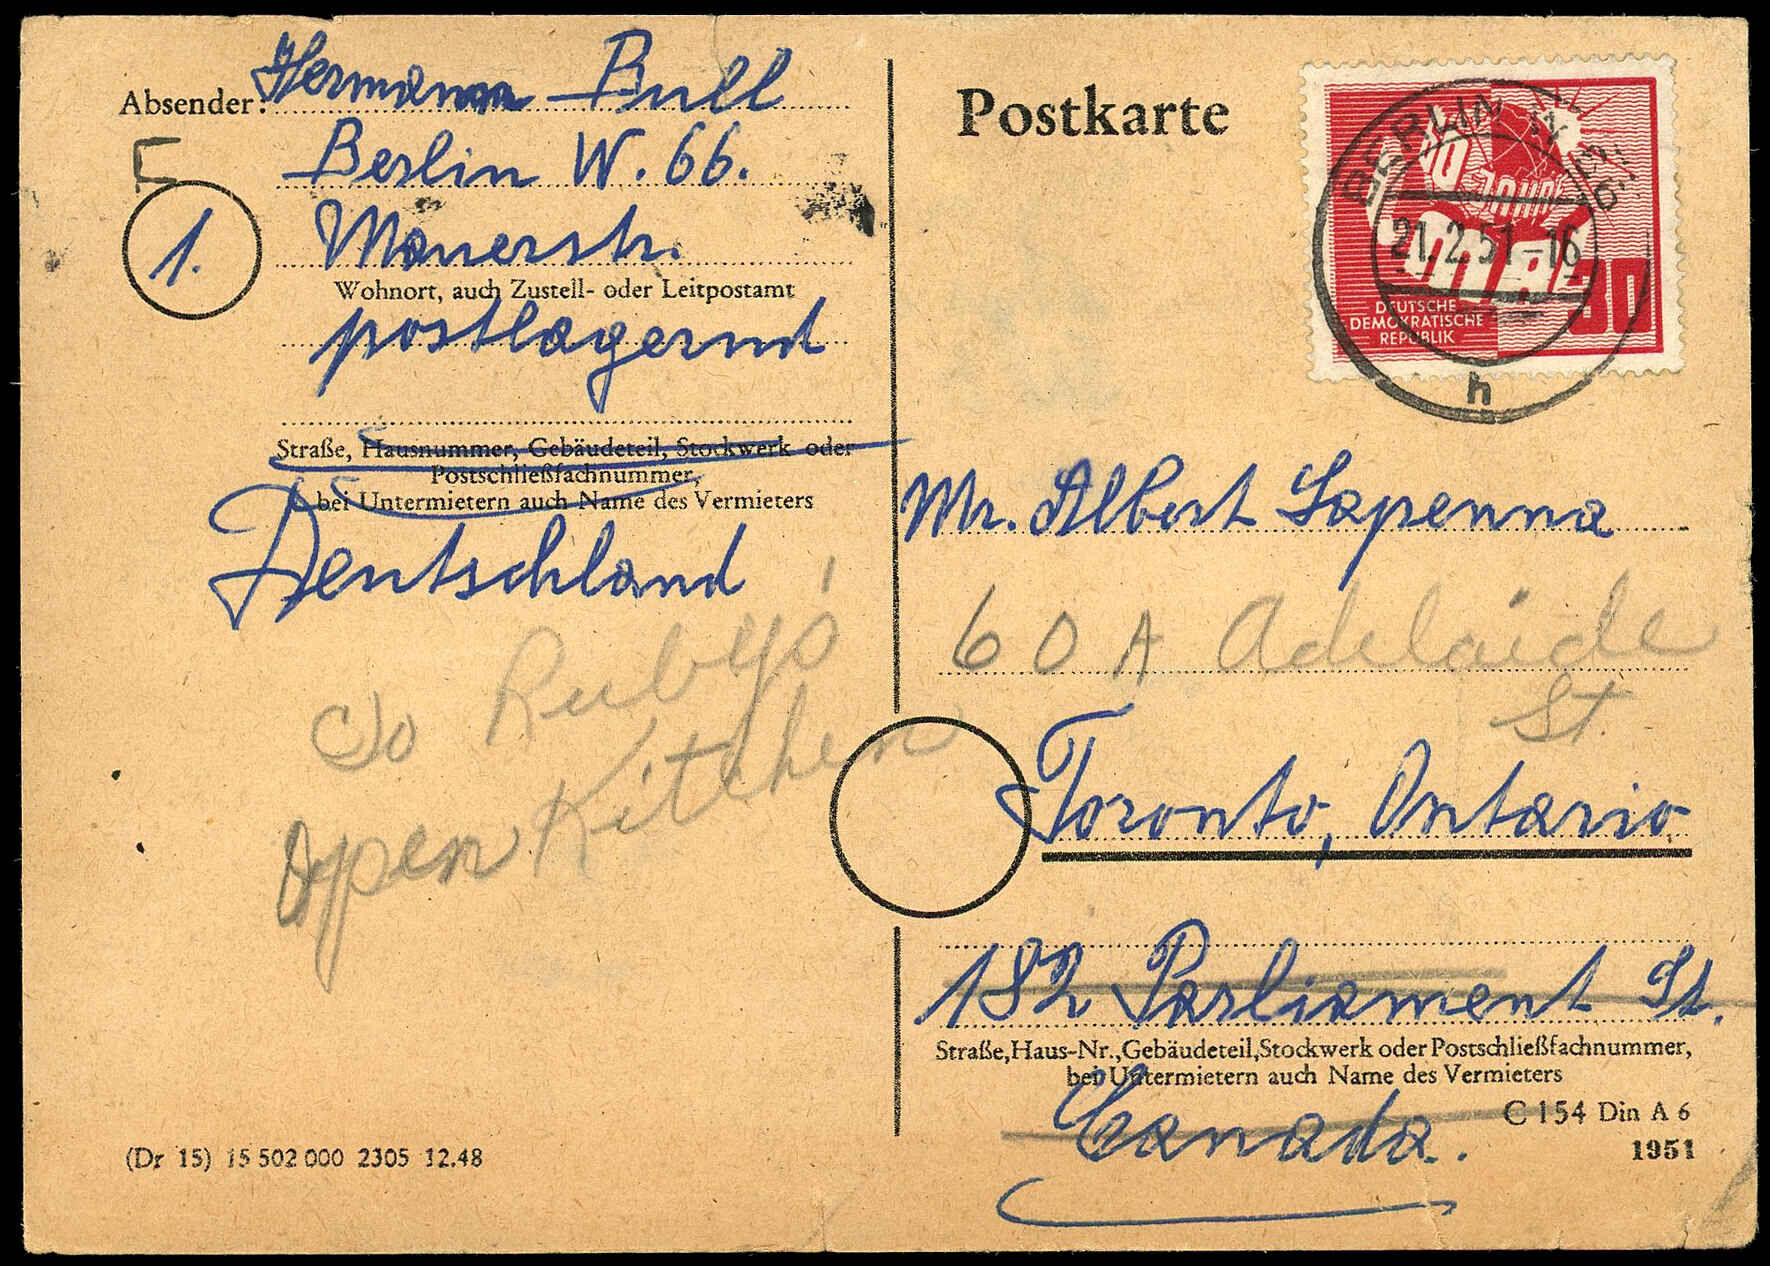 Absender: Hermann Bull
Berlin W. 66.
1.
Mauerstr.
Wohnort, auch Zustell- oder Leitpostamt
postlagernd
Straße, Hausnummer, Gebäudeteil, Stockwerk oder
Postschließfachnummer,
bei Untermietern auch Name des Vermieters
Deutschland
c/o Ruby's
Open Kitchen
(Dr 15) 15 502 000 2305 12.48
Postkarte
BERLIN W
21.2.51-16
h
JAHRE
1. MAI
DEUTSCHE
DEMOKRATISCHE
REPUBLIK
30
Mr. Albert Lapenna
60A Adelaide
St.
Toronto, Ontario
182 Parliament St.
Straße, Haus-Nr., Gebäudeteil, Stockwerk oder Postschließfachnummer,
bei Untermietern auch Name des Vermieters
Canada.
C 154 Din A 6
1951